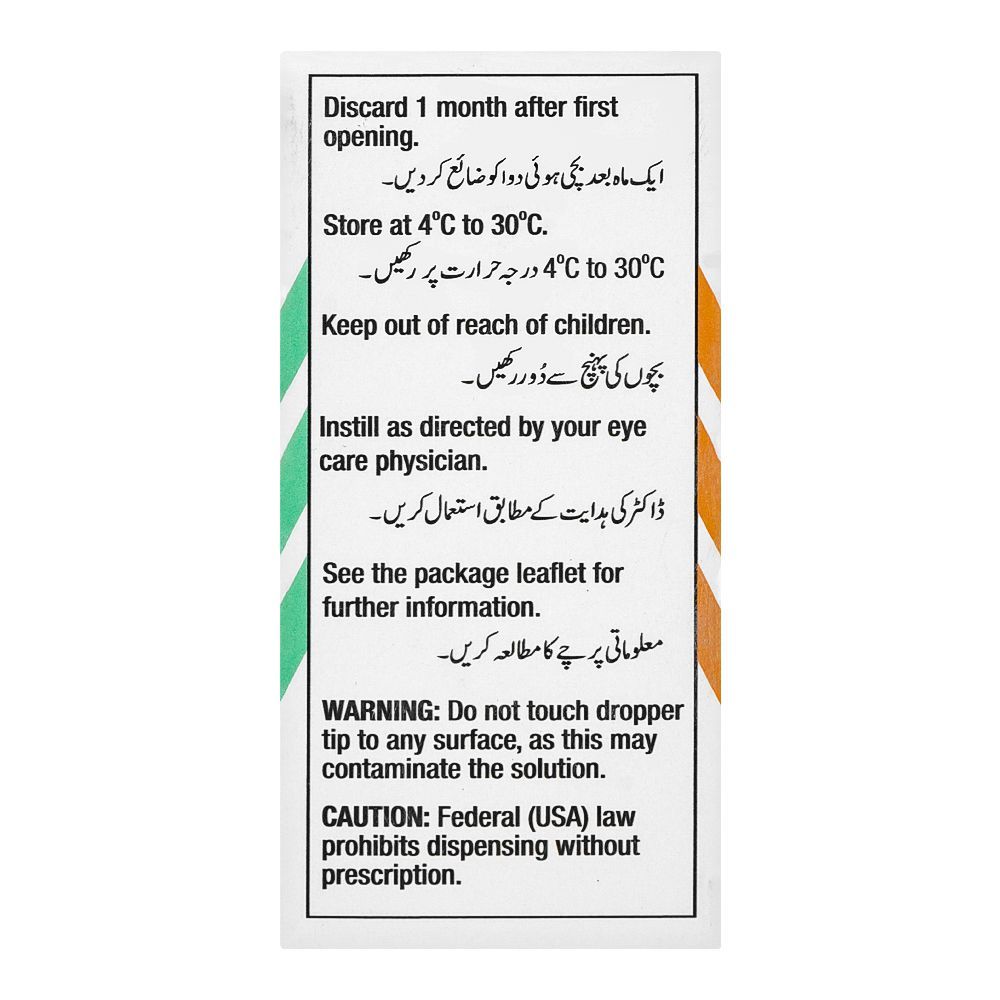 Discard 1 month after first
opening.
ایک ماہ بعد بچی ہوئی دوا کو ضائع کردیں۔
Store at 4ºC to 30ºC.
4ºC to 30ºC درجہ حرارت پر رکھیں۔
Keep out of reach of children.
بچوں کی پہنچ سے دُور رکھیں۔
Instill as directed by your eye
care physician.
ڈاکٹر کی ہدایت کے مطابق استعمال کریں۔
See the package leaflet for
further information.
معلوماتی پرچے کا مطالعہ کریں۔
WARNING: Do not touch dropper
tip to any surface, as this may
contaminate the solution.
CAUTION: Federal (USA) law
prohibits dispensing without
prescription.